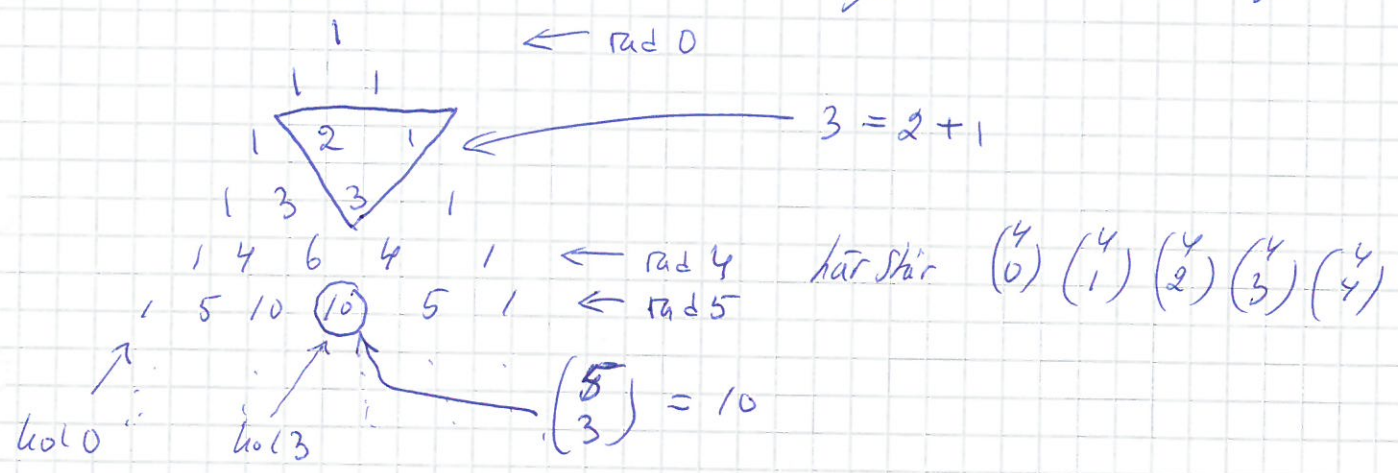 1 ← rad 0
1 1
1 2 1 ← 3 = 2 + 1
1 3 3 1
1 4 6 4 1 ← rad 4 här står (4 0) (4 1) (4 2) (4 3) (4 4)
1 5 10 10 5 1 ← rad 5
(5 3) = 10
kol 0 kol 3